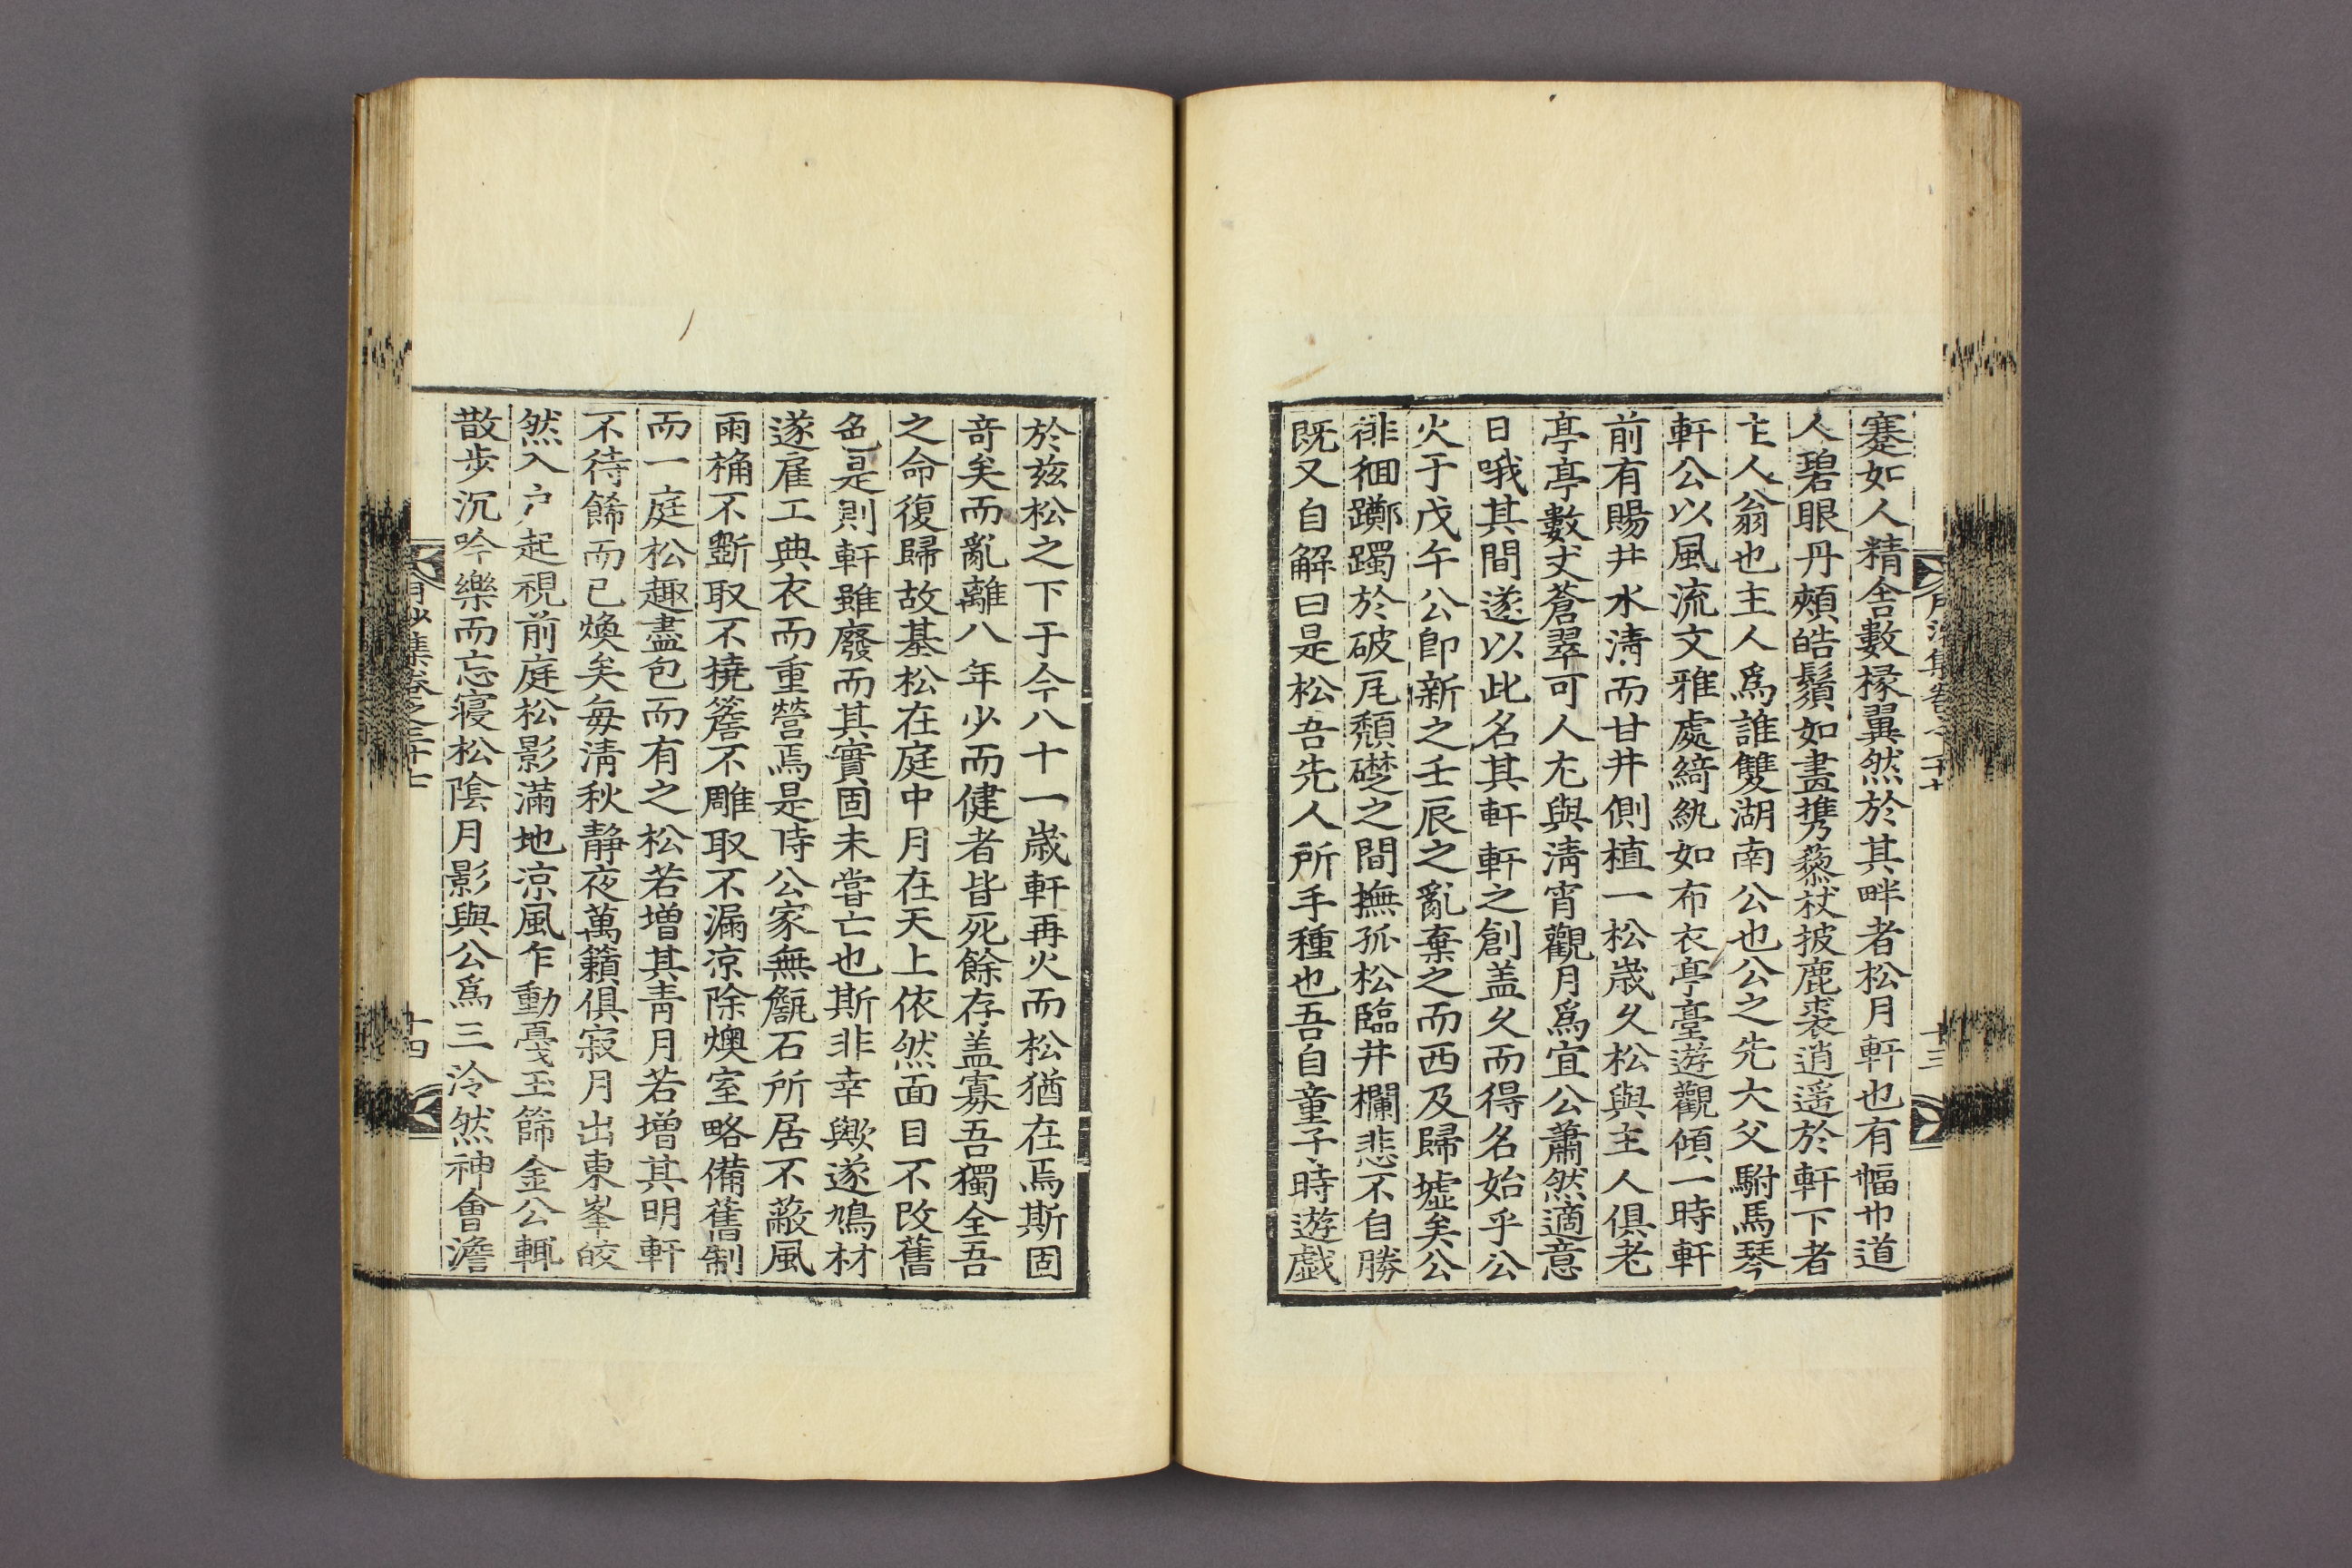 蹇如人精舍數椽翼然於其畔者松月軒也有幅巾道
人碧眼丹頰皓鬚如畫携藜杖披鹿裘逍遥於軒下者
主人翁也主人爲誰雙湖南公也公之先大父駙馬琴
軒公以風流文雅處綺紈如布衣亭臺遊觀傾一時軒
前有賜井水淸而甘井側植一松歲久松與主人俱老
亭亭數丈蒼翠可人尤與淸宵觀月爲宜公蕭然適意
日哦其間遂以此名其軒軒之創盖久而得名始乎公
火于戊午公卽新之壬辰之亂棄之而西及歸墟矣公
徘徊躑躅於破瓦頹礎之間撫孤松臨井欄悲不自勝
既又自解曰是松吾先人所手種也吾自童子時遊戱
月沙集卷之三十七
十三
於玆松之下于今八十一歲軒再火而松猶在焉斯固
竒矣而亂離八年少而健者皆死餘存盖寡吾獨全吾
之命復歸故基松在庭中月在天上依然面目不改舊
色是則軒雖廢而其實固未甞亡也斯非幸歟遂鳩材
遂雇工典衣而重營焉是時公家無甔石所居不蔽風
雨桷不斲取不撓簷不雕取不漏凉除燠室略備舊制
而一庭松趣盡包而有之松若增其靑月若增其明軒
不待餙而已煥矣每淸秋靜夜萬籟俱寂月出東峯皎
然入户起視前庭松影滿地凉風乍動戞玉篩金公輒
散步沉吟樂而忘寢松陰月影與公爲三泠然神會澹
月沙集卷之三十七
十四